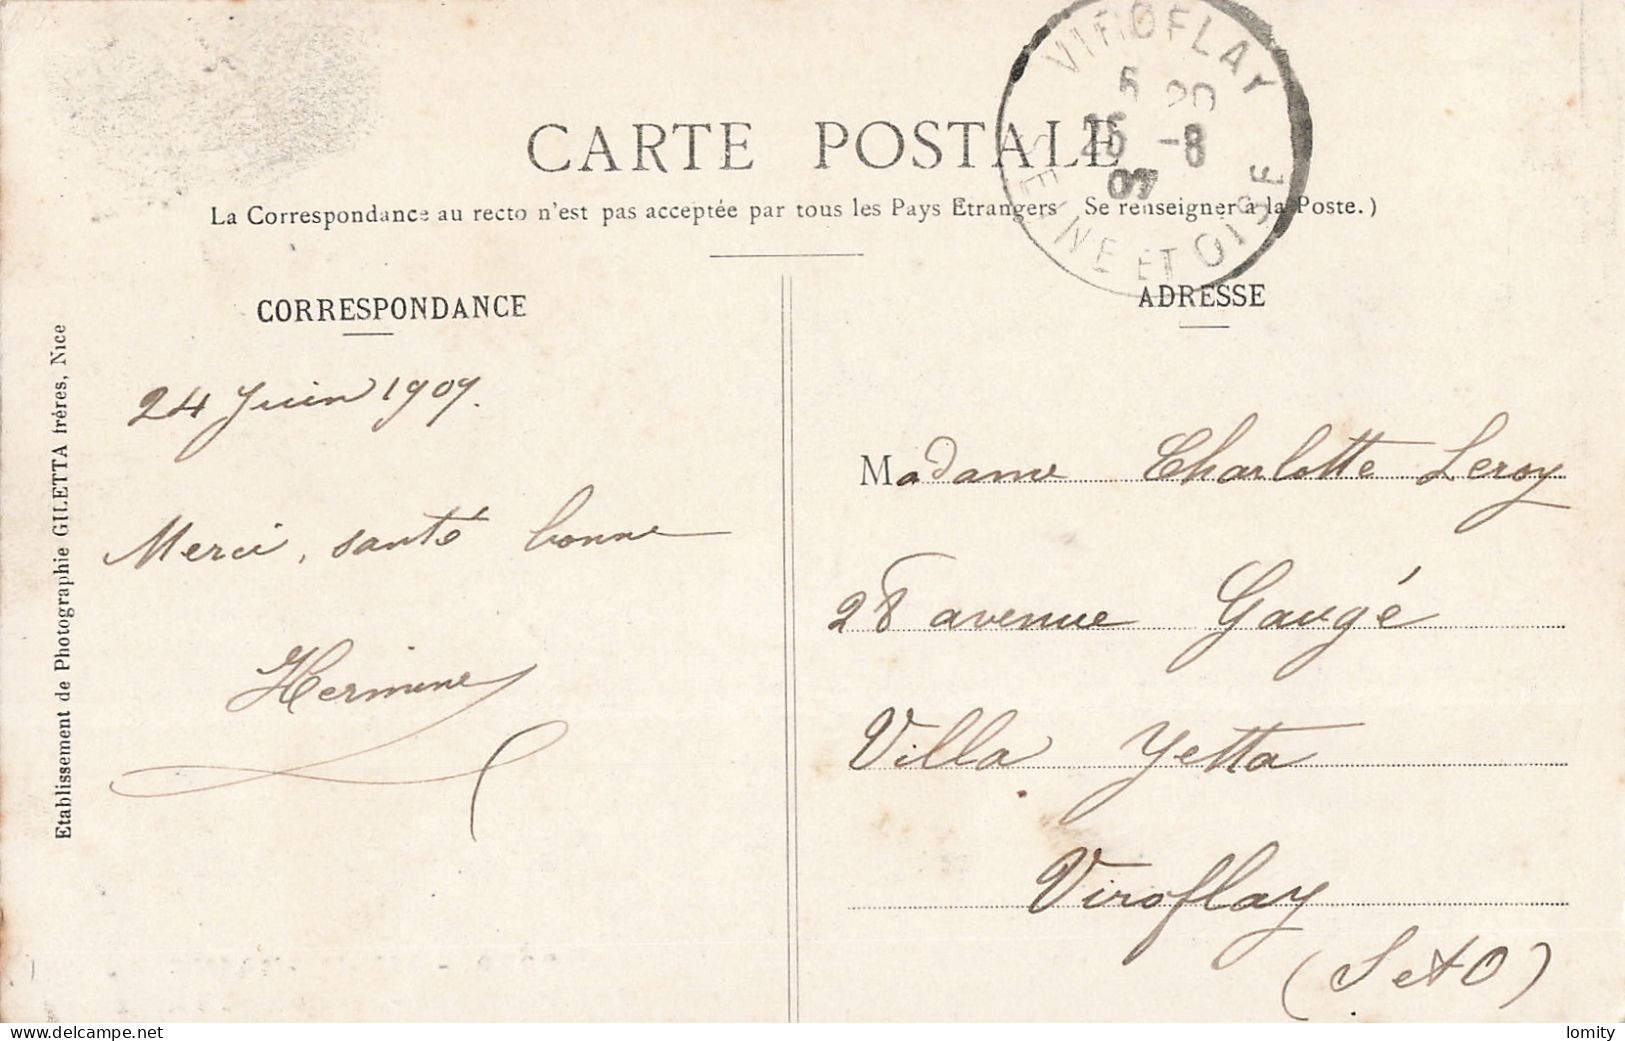 VIROFLAY
20
-8
07
SEINE ET OISE
CARTE POSTALE
La Correspondance au recto n'est pas acceptée par tous les Pays Etrangers Se renseigner à la Poste.)
CORRESPONDANCE
24 Juin 1907.
Merci, santé bonne
Hermine
Etablissement de Photographie GILETTA frères, Nice
ADRESSE
Madame Charlotte Leroy
28 avenue Gaugé
Villa Yetta
Viroflay
(S et O)
lomity